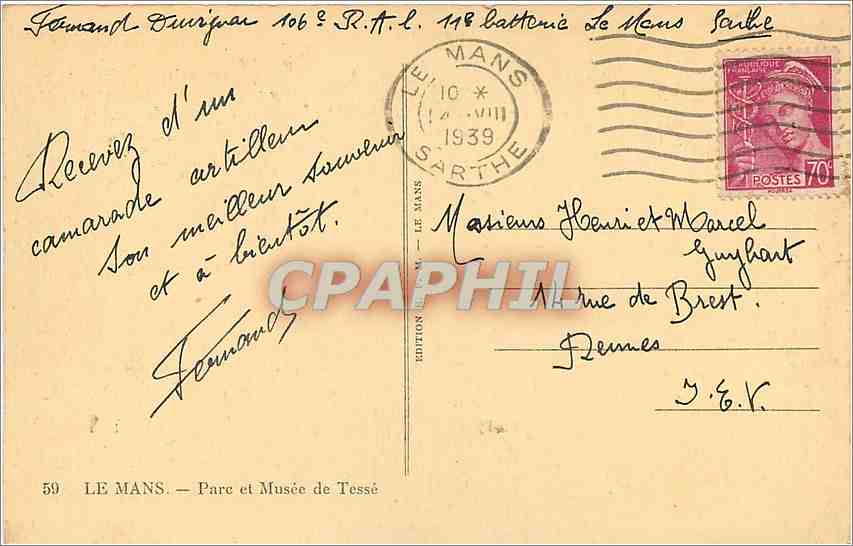 Fernand Duvignac 106e R.A.l. 11e batterie Le Mans Sarthe
LE MANS
10 *
14 VIII
1939
SARTHE
REPUBLIQUE
FRANÇAISE
POSTES 70c
Recevez d'un
camarade artilleur
son meilleur souvenir
et à bientôt.
Fernand
CPAPHIL
Messieurs Henri et Marcel
Guyhart
rue de Brest.
Rennes
I.E.V.
LE MANS
59 LE MANS. — Parc et Musée de Tessé